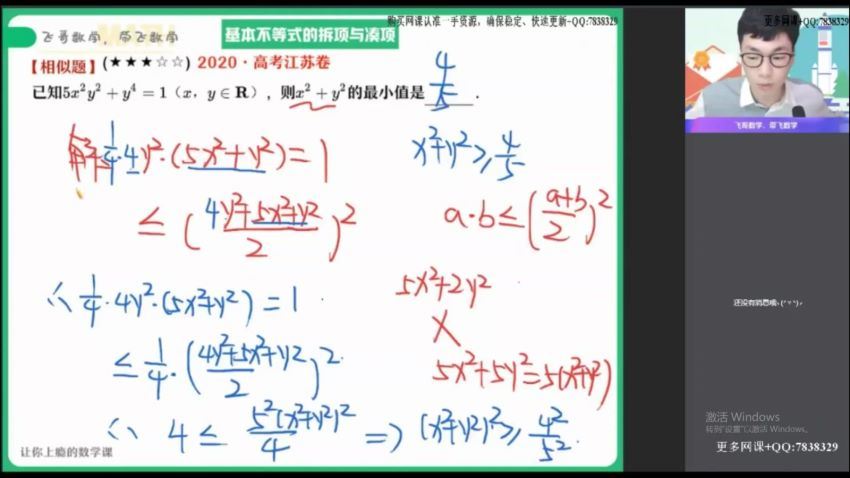 购买网课认准一手货源，确保稳定、快速更新-QQ:7838329
更多网课+QQ:7838329
飞哥数学，带飞数学
基本不等式的拆项与凑项
【相似题】(★★★☆☆) 2020·高考江苏卷
已知5x²y²+y⁴=1（x，y∈R），则x²+y²的最小值是 4/5 .
1/4·4y²·(5x²+y²)=1
x²+y²≥4/5
≤((4y²+5x²+y²)/2)²
a·b≤((a+b)/2)²
∴ 1/4·4y²·(5x²+y²)=1
5x²+2y²
X
≤1/4·((4y²+5x²+y²)/2)²
5x²+5y²=5(x²+y²)
∴ 4≤5²(x²+y²)²/4 ⇒ (x²+y²)²≥4²/5²
让你上瘾的数学课
飞哥数学，带飞数学
还没有消息哦~(*^▽^*)
激活 Windows
转到"设置"以激活 Windows。
更多网课+QQ:7838329